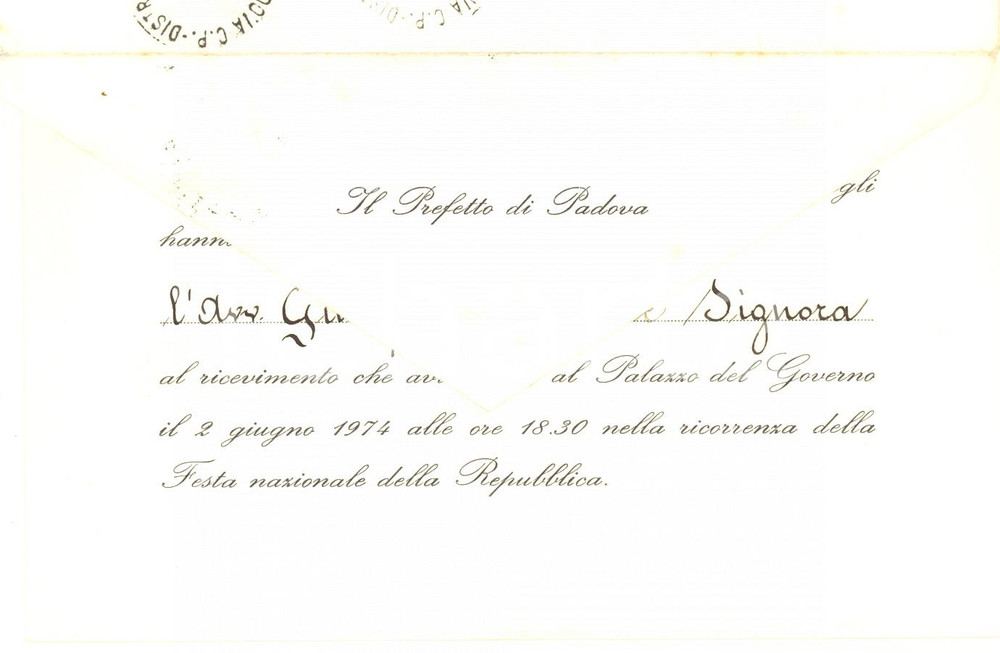 DOVIA C.P.-DISTR
VIA C.P.-D
Il Prefetto di Padova
gli
hanno
l'Avv. Gu
e Signora
al ricevimento che av
al Palazzo del Governo
il 2 giugno 1974 alle ore 18.30 nella ricorrenza della
Festa nazionale della Repubblica.